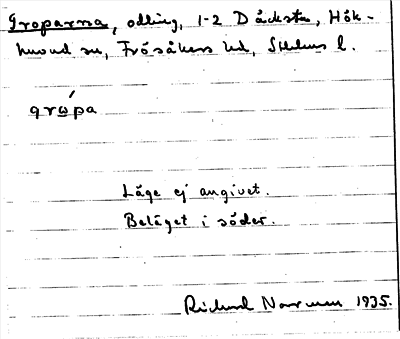 Groparna, odling, 1-2 Däcksta, Håk-
huvud sn, Frösåkers hd, Sthlms l.
grώpa
Läge ej angivet.
Beläget i söder.
Richard Norrman 1935.